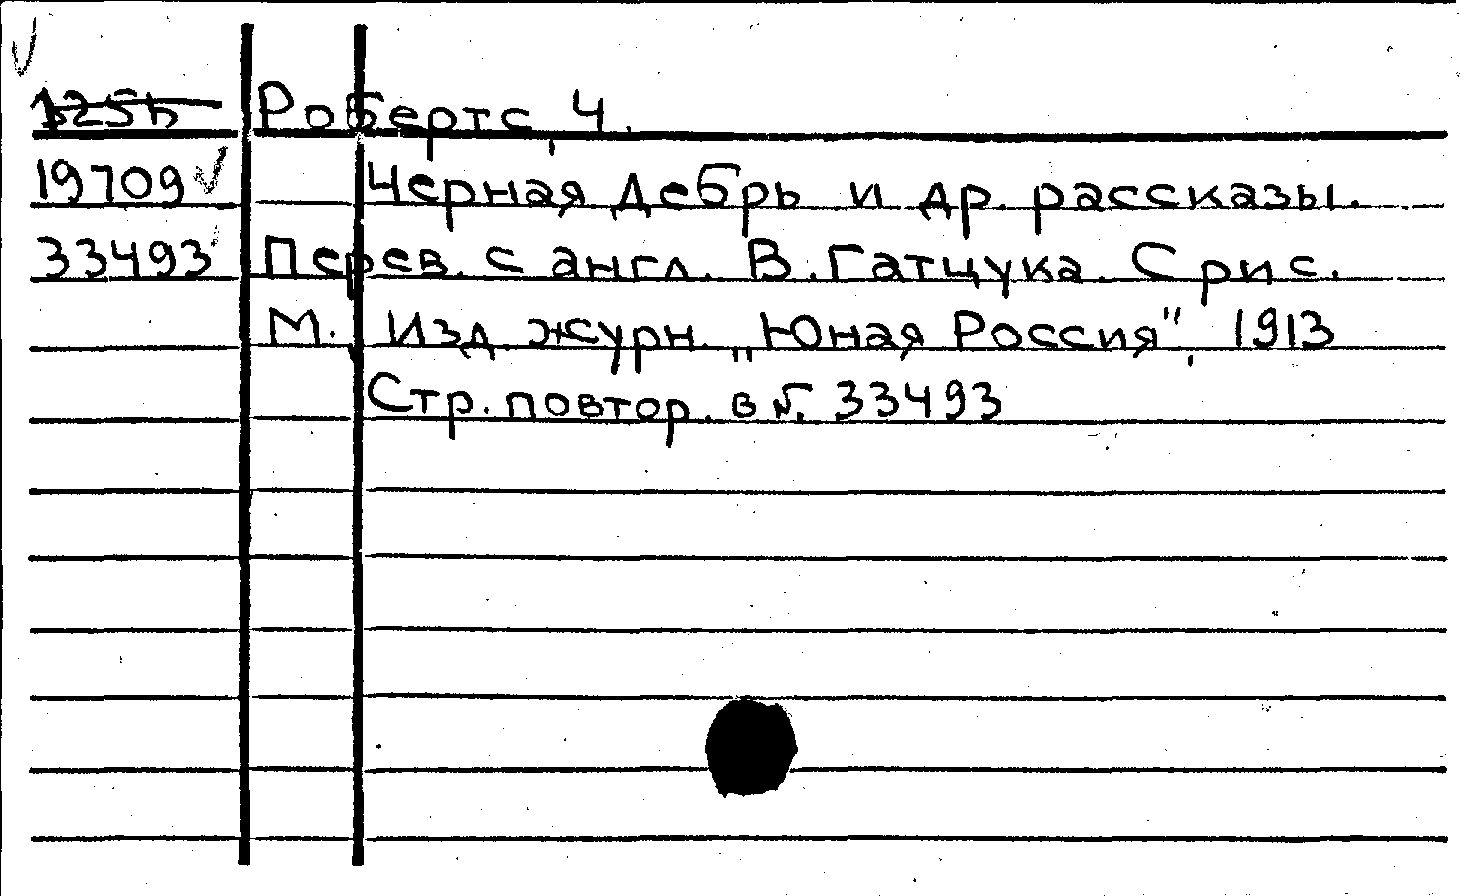 Робертс, Ч.
19709 Черная дебрь и др. рассказы.
33493 Перев. с англ. В. Гатцука. С рис.
М. Изд. журн. „Юная Россия", 1913
Стр. повтор. в №. 33493